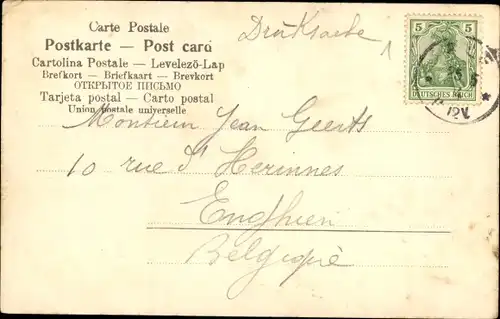 Carte Postale
Postkarte — Post card
Cartolina Postale — Levelező-Lap
Brefkort — Briefkaart — Brevkort
ОТКРЫТОЕ ПИСЬМО
Tarjeta postal — Carto postal
Union postale universelle
Drucksache
1
5 5
DEUTSCHES REICH
12V.
Monsieur Jean Geerts
10 rue d' Herinnes
Enghien
Belgique